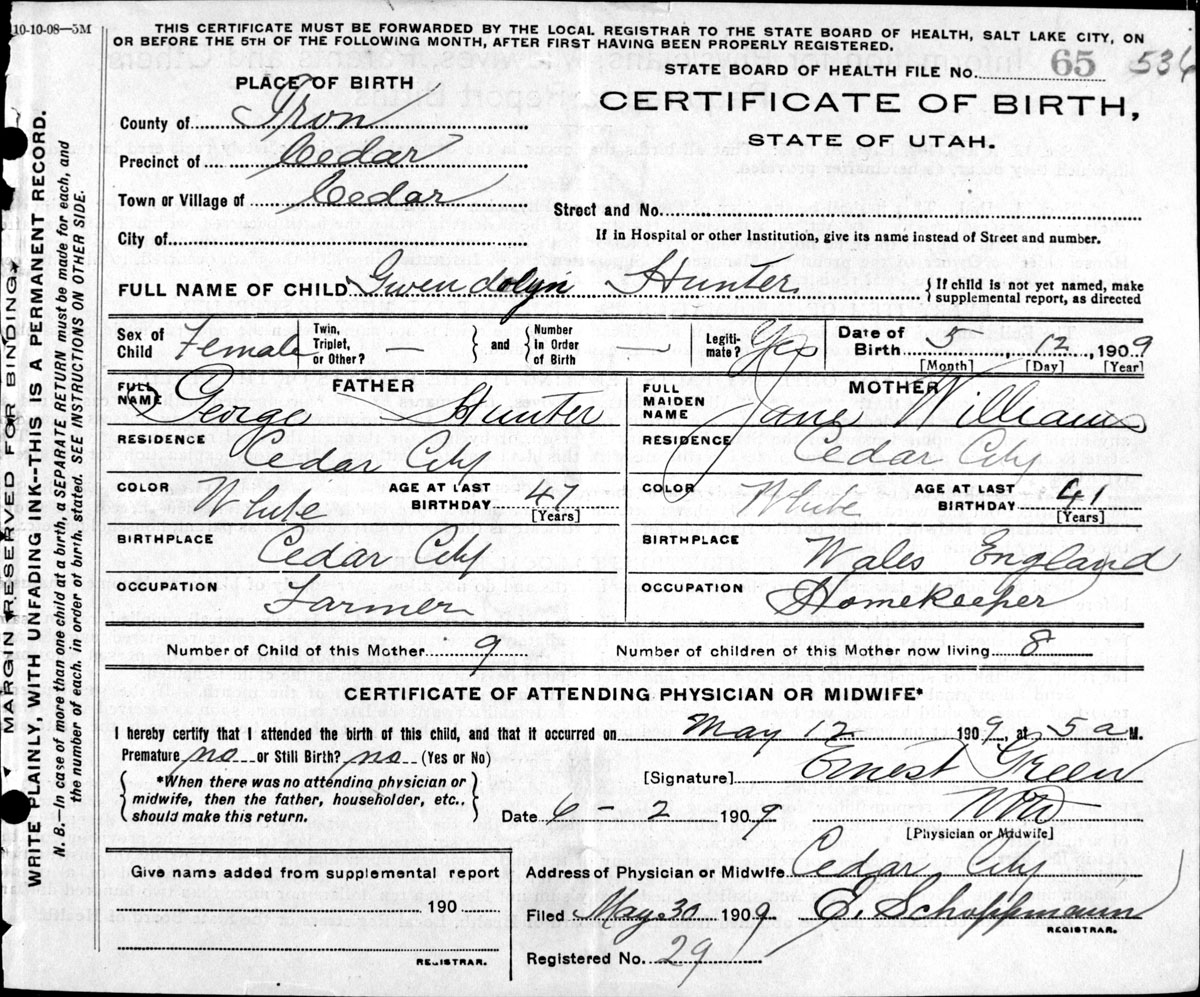 10-10-08—5M
THIS CERTIFICATE MUST BE FORWARDED BY THE LOCAL REGISTRAR TO THE STATE BOARD OF HEALTH, SALT LAKE CITY, ON
OR BEFORE THE 5TH OF THE FOLLOWING MONTH, AFTER FIRST HAVING BEEN PROPERLY REGISTERED.
STATE BOARD OF HEALTH FILE NO. 65 536
PLACE OF BIRTH
CERTIFICATE OF BIRTH,
STATE OF UTAH.
County of Iron
Precinct of Cedar
Town or Village of Cedar
Street and No.
City of
If in Hospital or other Institution, give its name instead of Street and number.
FULL NAME OF CHILD Gwendolyn Hunter { If child is not yet named, make
supplemental report, as directed
Sex of Child Female Twin, Triplet, or Other? — } and { Number in Order of Birth — Legitimate? Yes Date of Birth 5, 12, 1909
[Month] [Day] [Year]
FATHER
FULL NAME George Hunter
RESIDENCE Cedar City
COLOR White AGE AT LAST BIRTHDAY 47
[Years]
BIRTHPLACE Cedar City
OCCUPATION Farmer
MOTHER
FULL MAIDEN NAME Jane Williams
RESIDENCE Cedar City
COLOR White AGE AT LAST BIRTHDAY 41
[Years]
BIRTHPLACE Wales England
OCCUPATION Homekeeper
Number of Child of this Mother 9 Number of children of this Mother now living 8
CERTIFICATE OF ATTENDING PHYSICIAN OR MIDWIFE*
I hereby certify that I attended the birth of this child, and that it occurred on May 12 1909, at 5 a M.
Premature no or Still Birth? no (Yes or No)
{ *When there was no attending physician or
midwife, then the father, householder, etc.,
should make this return. }
[Signature] Ernest Green
Date 6-2 1909 MD
[Physician or Midwife]
Give name added from supplemental report
190
REGISTRAR.
Address of Physician or Midwife Cedar City
Filed May 30 1909 E. Schoppmann
REGISTRAR.
Registered No. 29
MARGIN RESERVED FOR BINDING
WRITE PLAINLY, WITH UNFADING INK--THIS IS A PERMANENT RECORD.
N. B.—In case of more than one child at a birth, a SEPARATE RETURN must be made for each, and
the number of each, in order of birth, stated. SEE INSTRUCTIONS ON OTHER SIDE.